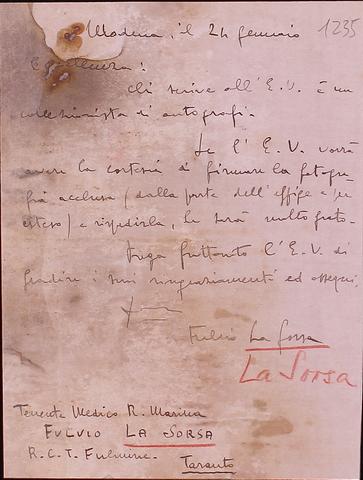 1235
Modena, il 24 gennaio
Eccellenza:
chi scrive all'E.V. è un
collezionista di autografi.
Se l'E.V. vorrà
avere la cortesia di firmare la fotogra-
fia acclusa (dalla parte dell'effige e per
esteso) e rispedirla, le sarà molto grato.
Prega frattanto l'E.V. di
gradire i suoi ringraziamenti ed ossequi.
Fulvio La Sorsa
La Sorsa
Tenente Medico R. Marina
FULVIO LA SORSA
R.C.T. Fulmine.
Taranto